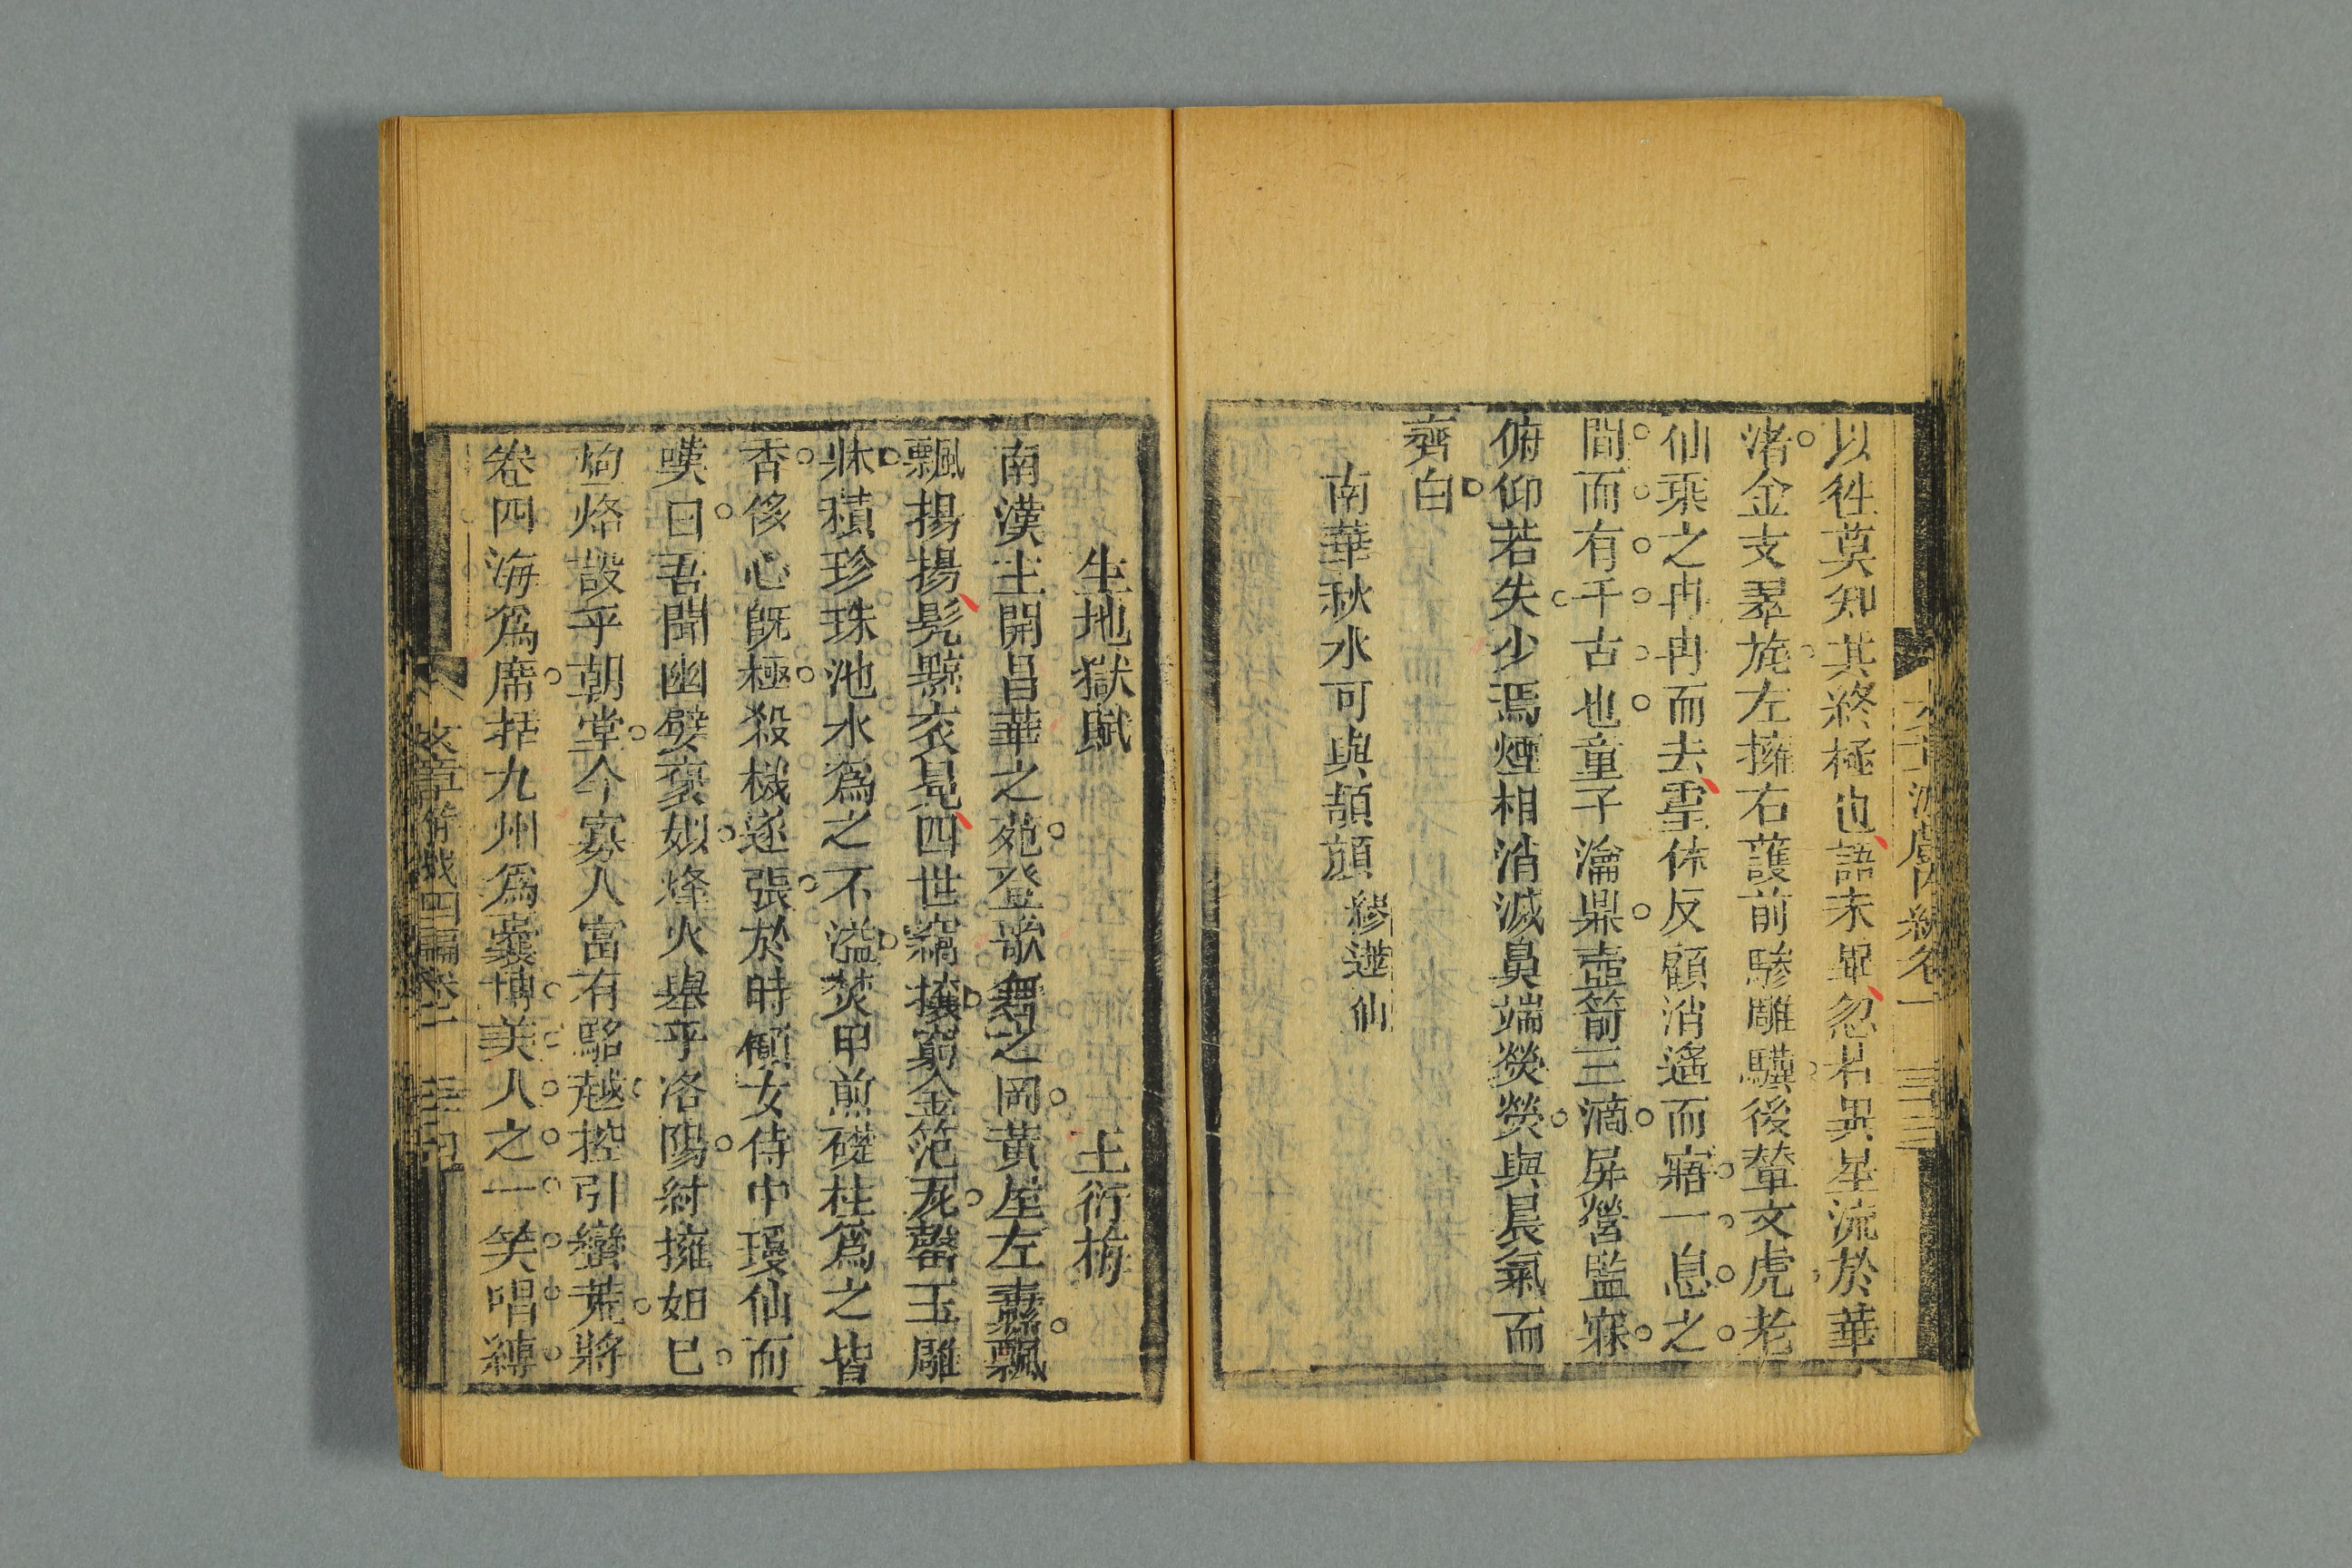 以往莫知其終極也語未畢忽若異星流於華
渚金支翠旄左擁右護前驂雕驥後輦文虎老
仙乘之冉冉而去霊倏反顧消遙而寤一息之
間而有千古也童子瀹鼎壺箭三滴屏營監寐
俯仰若失少焉煙相消滅鼻端熒熒與晨氣而
齊白
南華秋水可與頡頏 繆蓮仙
生地獄賦 王衍梅
南漢主開昌華之苑登歌舞之岡黃屋左纛飄
飄揚揚髡黥衣見四世竊攘窮金范尨罄玉雕
牀積珍珠池水為之不溢焚甲煎礎柱為之皆
香侈心旣極殺機遂張於時傾女侍中瓊仙而
嘆曰吾聞幽嬖褒姒烽火舉乎洛陽紂擁妲己
炮烙設乎朝堂今寡人富有駱越控引蠻荒將
卷四海為席括九州為囊博美人之一笑唱縳
文章游戲四編卷一 三十四